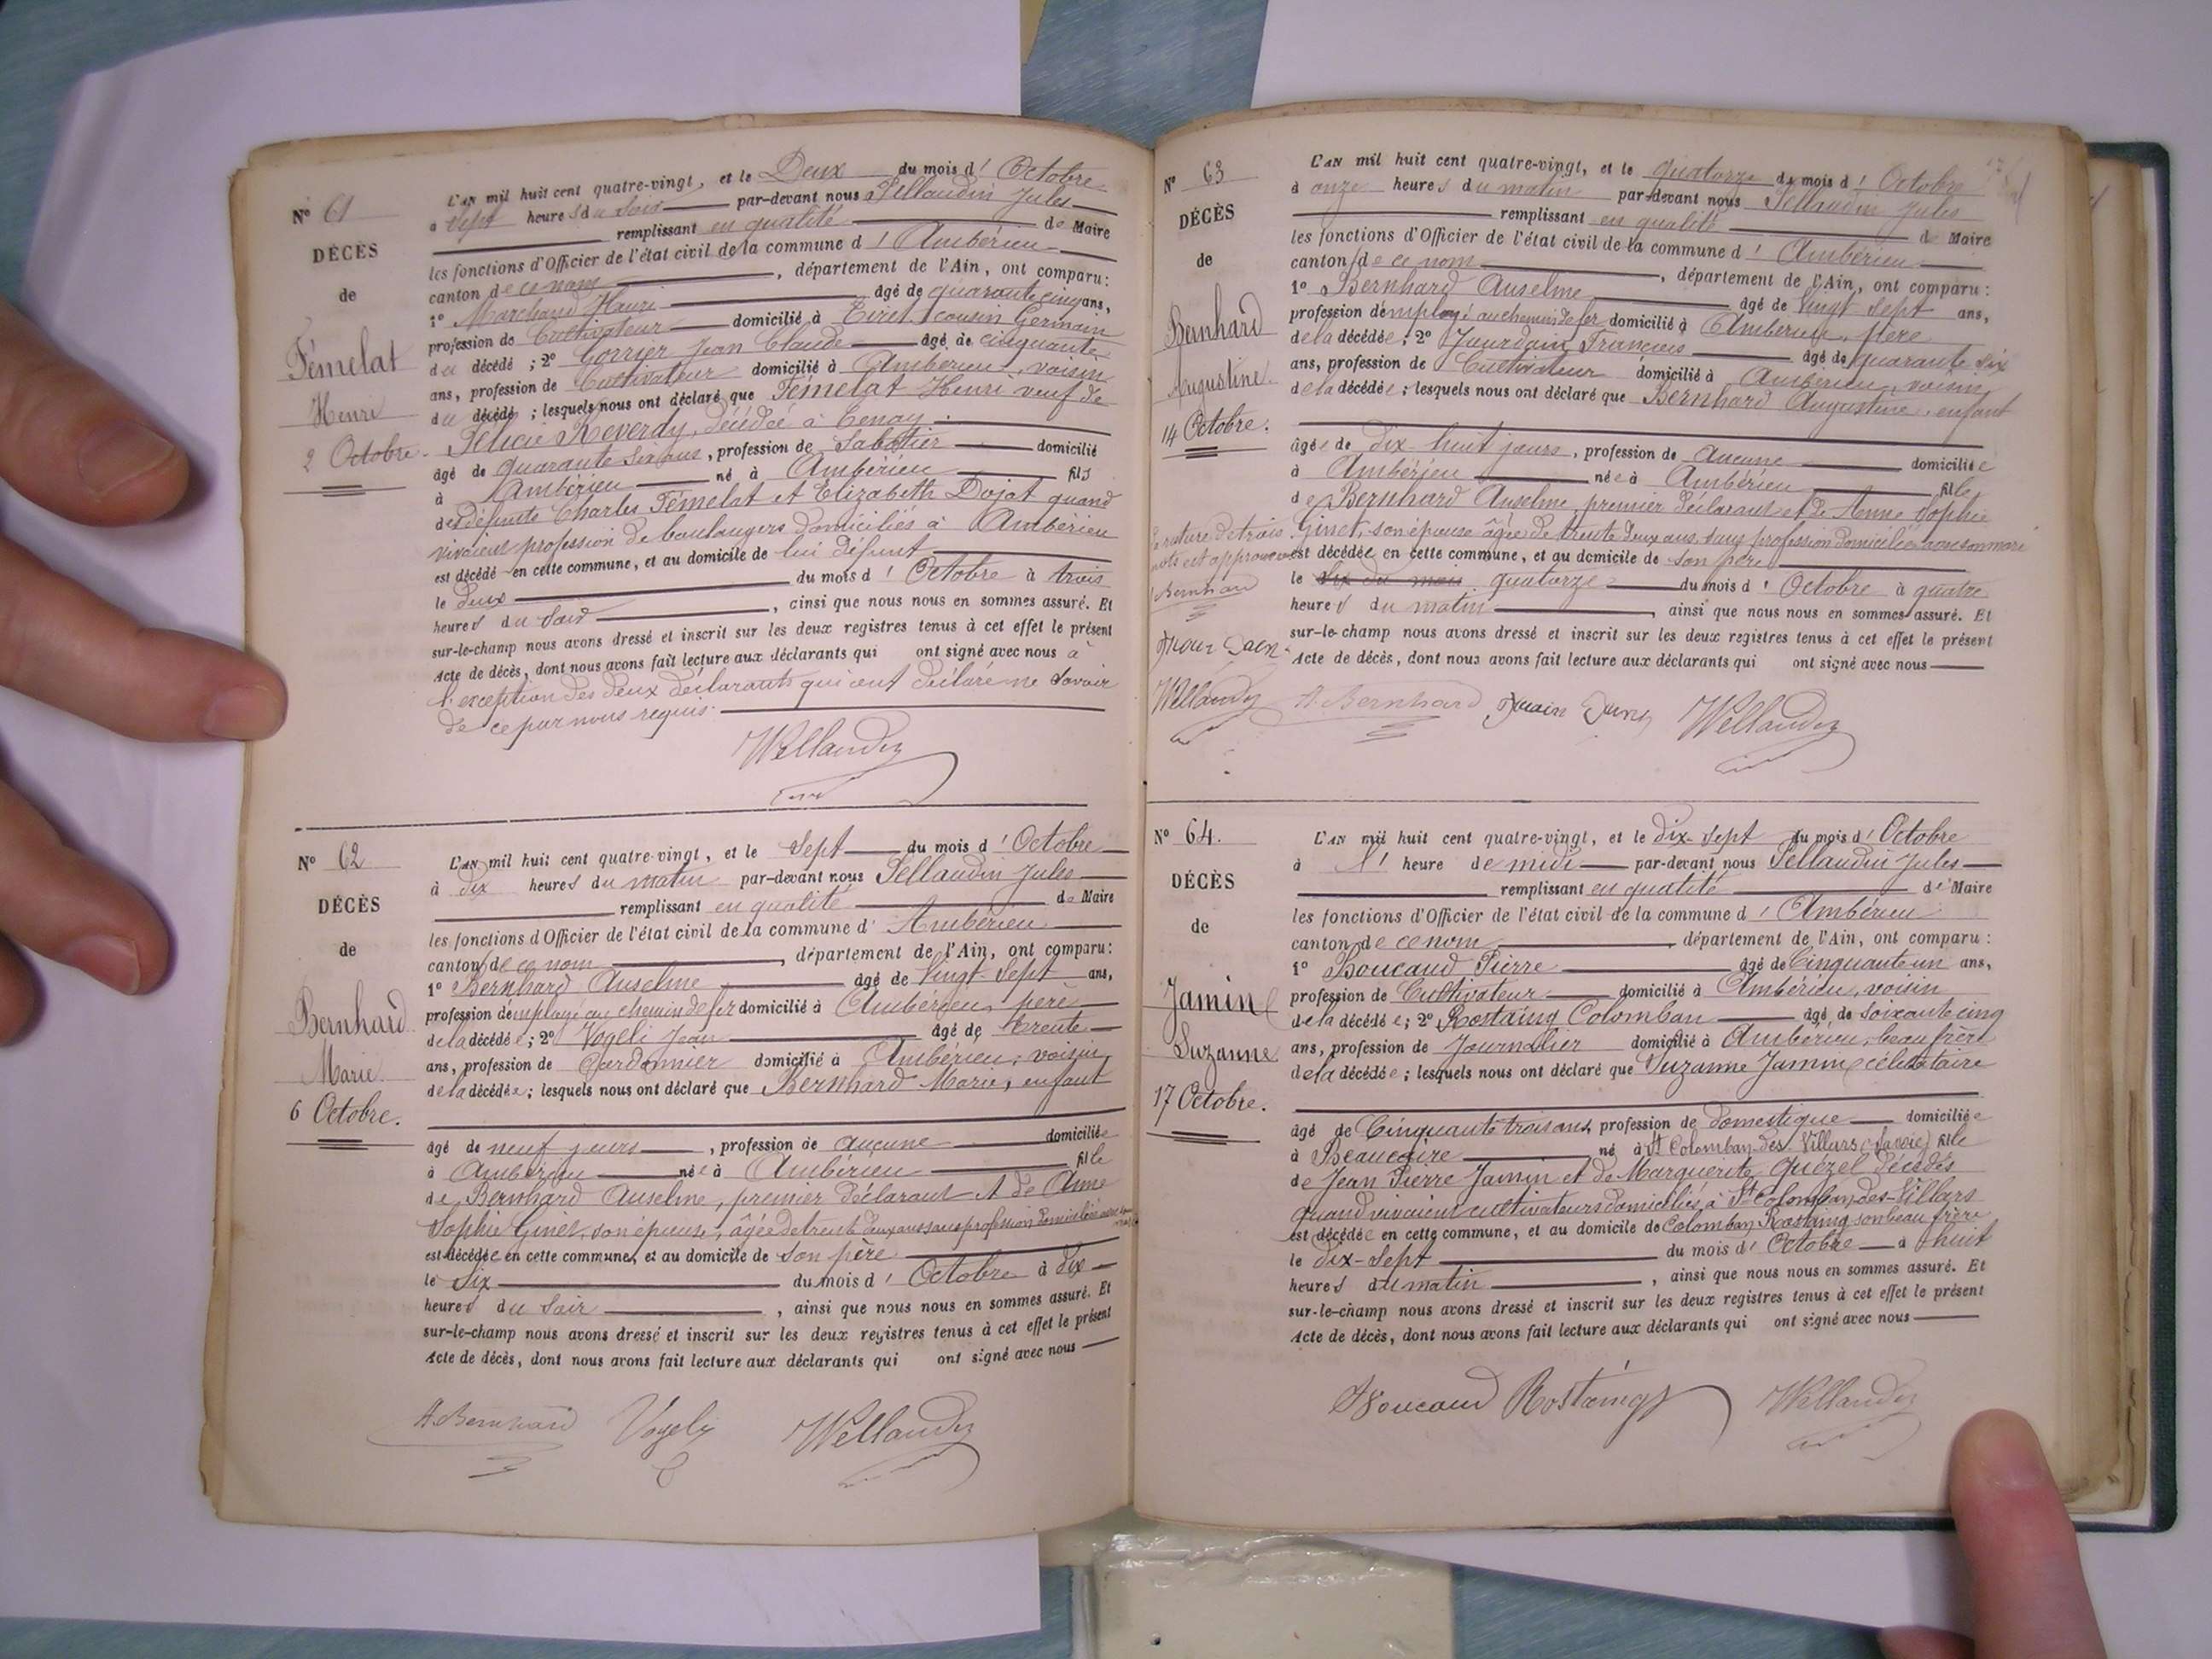 N° 61
DÉCÈS
de
Fémelat
Henri
2 Octobre.
L'AN mil huit cent quatre-vingt, et le Deux du mois d'Octobre
à sept heures du soir par-devant nous Pellaudin Jules
remplissant en qualité de Maire
les fonctions d'Officier de l'état civil de la commune d'Ambérieu
canton de ce nom, département de l'Ain, ont comparu:
1° Marchand Henri âgé de quarante cinq ans,
profession de Cultivateur domicilié à Tiret, cousin Germain
du décédé; 2° Gorrier Jean Claude âgé de cinquante
ans, profession de Cultivateur domicilié à Ambérieu, voisin
du décédé; lesquels nous ont déclaré que Fémelat Henri veuf de
Félicie Reverdy, décédée à Tenay
âgé de quarante six ans, profession de Sabotier domicilié
à Ambérieu né à Ambérieu fils
des défunts Charles Fémelat et Elizabeth Dujat quand
vivaient profession de boulangers domiciliés à Ambérieu
est décédé en cette commune, et au domicile de lui défunt
le deux du mois d'Octobre à trois
heures du soir, ainsi que nous nous en sommes assuré. Et
sur-le-champ nous avons dressé et inscrit sur les deux registres tenus à cet effet le présent
Acte de décès, dont nous avons fait lecture aux déclarants qui ont signé avec nous à
l'exception des deux déclarants qui ont déclaré ne savoir
de ce par nous requis.
N° 62
DÉCÈS
de
Bernhard
Marie
6 Octobre.
L'AN mil huit cent quatre-vingt, et le Sept du mois d'Octobre
à dix heures du matin par-devant nous Pellaudin Jules
remplissant en qualité de Maire
les fonctions d'Officier de l'état civil de la commune d'Ambérieu
canton de ce nom, département de l'Ain, ont comparu:
1° Bernhard Anselme âgé de Vingt-Sept ans,
profession d'employé au chemin de fer domicilié à Ambérieu, père
de la décédée; 2° Vogeli Jean âgé de trente
ans, profession de Cordonnier domicilié à Ambérieu, voisin
de la décédée; lesquels nous ont déclaré que Bernhard Marie, enfant
âgé de neuf jours, profession de aucune domiciliée
à Ambérieu née à Ambérieu fille
de Bernhard Anselme, premier déclarant et de Anne
Sophie Ginet, son épouse, âgée de trente deux ans sans profession domiciliée avec son mari
est décédée en cette commune, et au domicile de son père
le Six du mois d'Octobre à dix
heures du soir, ainsi que nous nous en sommes assuré. Et
sur-le-champ nous avons dressé et inscrit sur les deux registres tenus à cet effet le présent
Acte de décès, dont nous avons fait lecture aux déclarants qui ont signé avec nous
A. Bernhard Vogely
N° 63
DÉCÈS
de
Bernhard
Augustine.
14 Octobre.
La rature de trois
mots est approuvée
Bernhard
L'AN mil huit cent quatre-vingt, et le quatorze du mois d'Octobre
à onze heures du matin par-devant nous Pellaudin Jules
remplissant en qualité de Maire
les fonctions d'Officier de l'état civil de la commune d'Ambérieu
canton de ce nom, département de l'Ain, ont comparu:
1° Bernhard Anselme âgé de Vingt-Sept ans,
profession d'employé au chemin de fer domicilié à Ambérieu, père
de la décédée; 2° Jourdain François âgé de quarante six
ans, profession de Cultivateur domicilié à Ambérieu, voisin
de la décédée; lesquels nous ont déclaré que Bernhard Augustine, enfant
âgée de dix-huit jours, profession de aucune domiciliée
à Ambérieu née à Ambérieu fille
de Bernhard Anselme, premier déclarant et de Anne Sophie
Ginet, son épouse âgée de trente deux ans, sans profession domiciliée avec son mari
est décédée en cette commune, et au domicile de son père
le six du mois quatorze du mois d'Octobre à quatre
heures du matin, ainsi que nous nous en sommes assuré. Et
sur-le-champ nous avons dressé et inscrit sur les deux registres tenus à cet effet le présent
Acte de décès, dont nous avons fait lecture aux déclarants qui ont signé avec nous
A. Bernhard
N° 64.
DÉCÈS
de
Jamin
Suzanne
17 Octobre.
L'AN mil huit cent quatre-vingt, et le dix-sept du mois d'Octobre
à l'heure de midi par-devant nous Pellaudin Jules
remplissant en qualité de Maire
les fonctions d'Officier de l'état civil de la commune d'Ambérieu
canton de ce nom, département de l'Ain, ont comparu:
1° Boucaud Pierre âgé de Cinquante un ans,
profession de Cultivateur domicilié à Ambérieu, voisin
de la décédée; 2° Rostaing Colomban âgé de soixante cinq
ans, profession de Journalier domicilié à Ambérieu, beau frère
de la décédée; lesquels nous ont déclaré que Suzanne Jamin célibataire
âgé de Cinquante trois ans, profession de domestique domiciliée
à Beaucaire né à St Colomban des Villars (Savoie) fille
de Jean Pierre Jamin et de Marguerite Quézel décédés
quand vivaient cultivateurs domiciliés à St Colomban-des-Villars
est décédée en cette commune, et au domicile de Colomban Rostaing son beau frère
le dix-sept du mois d'Octobre à huit
heures du matin, ainsi que nous nous en sommes assuré. Et
sur-le-champ nous avons dressé et inscrit sur les deux registres tenus à cet effet le présent
Acte de décès, dont nous avons fait lecture aux déclarants qui ont signé avec nous
Boucaud Rostaing